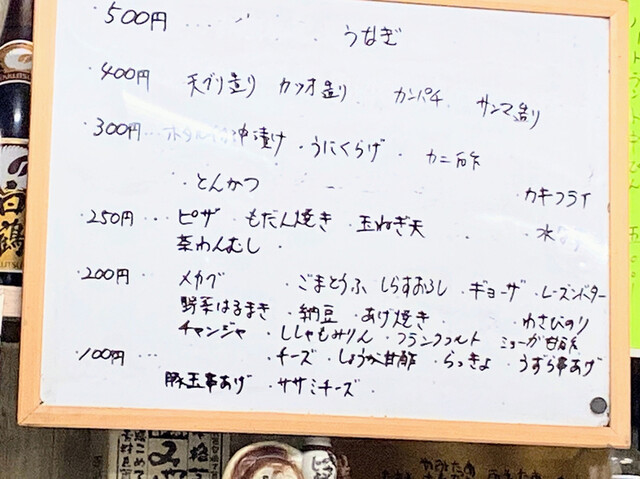 500円 うなぎ
400円 天ブリ造り カツオ造り カンパチ サンマ造り
300円 ホタルイカ沖漬け ・うにくらげ ・カニ酢
・とんかつ カキフライ
250円 ピザ ・もだん焼き 玉ねぎ天
茶わんむし ・
200円 メカブ ・ごまとうふ しらすおろし ・ギョーザ ・レーズンバター
野菜はるまき ・納豆 ・あげ焼き ・わさびのり
チャンジャ ・ししゃもみりん ・フランクフルト ミョーガ甘酢
100円 ・チーズ ・しょうが甘酢 ・らっきょ ・うずら串あげ
豚玉串あげ ・ササミチーズ ・
白鶴